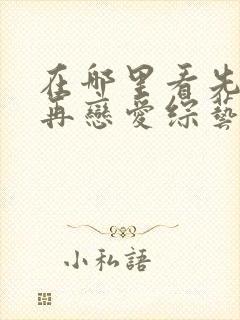 在哪里看先
再戀愛綜藝
小私語